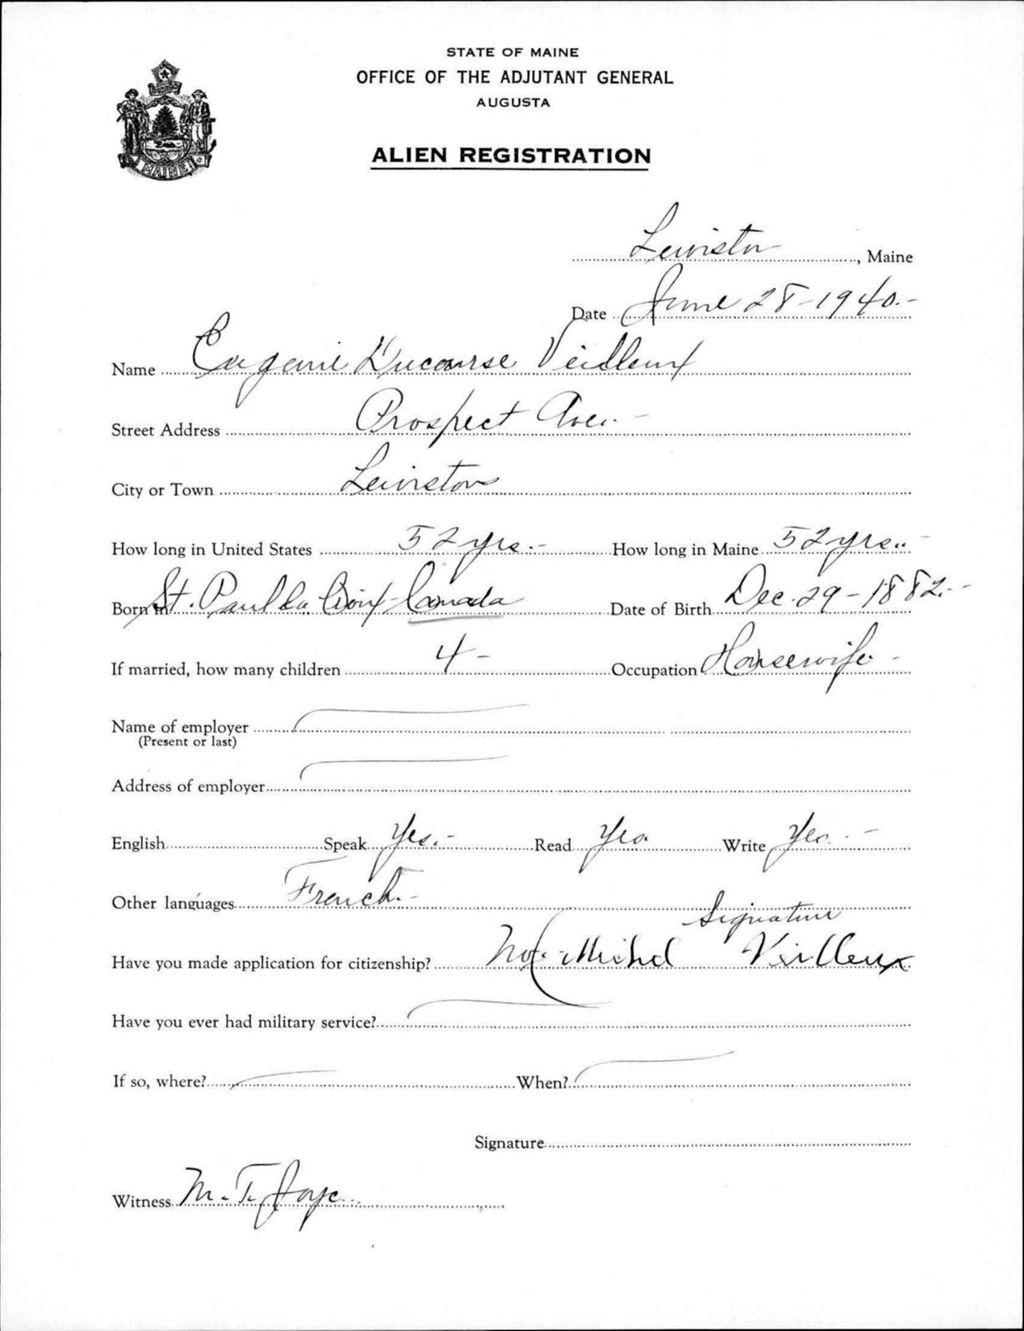 STATE OF MAINE
OFFICE OF THE ADJUTANT GENERAL
AUGUSTA
ALIEN REGISTRATION
MAINE
Lewiston, Maine
Date June 28-1940.-
Name Eugenie Ducourse Veilleux
Street Address Prospect Ave. -
City or Town Lewiston
How long in United States 52 yrs.- How long in Maine 52 yrs..
Born in St. Paul la Croix Canada Date of Birth Dec. 29-1882.-
If married, how many children 4 - Occupation Housewife -
Name of employer
(Present or last)
Address of employer
English Speak Yes. - Read Yes Write Yes. -
Other languages French. -
Signature
Have you made application for citizenship? No. Michel Veilleux
Have you ever had military service?
If so, where? When?
Signature
Witness M. T. Joyc